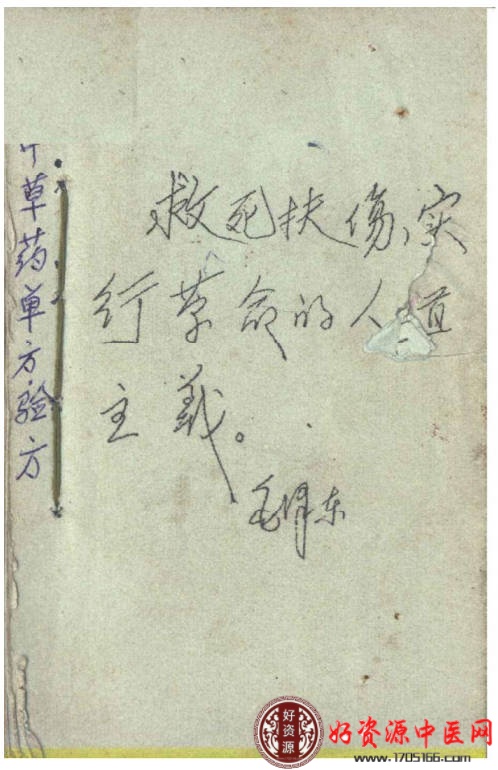 草药单方验方
救死扶傷,实
行革命的人道
主義。
毛泽东
好资源
好资源中医网
www.1705166.com